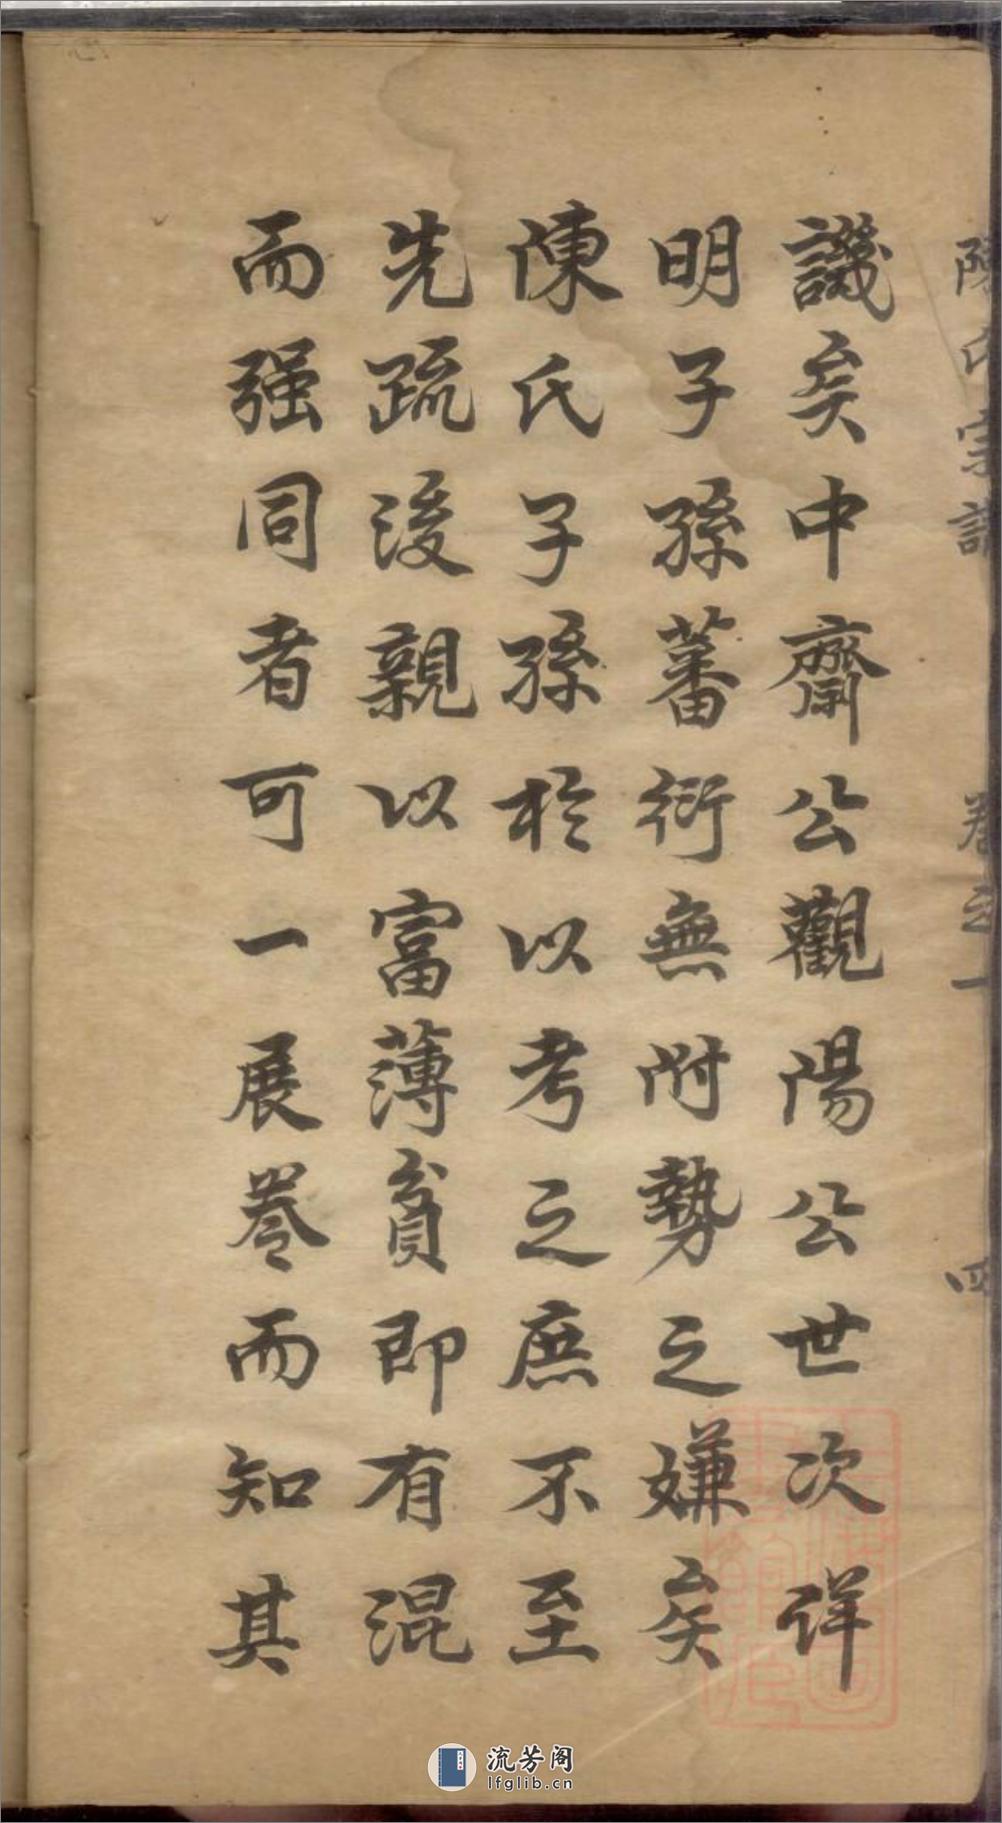 陳氏宗譜 卷之一 四
譏矣中齋公觀陽公世次詳
明子孫蕃衍無附勢之嫌矣
陳氏子孫於以考之庶不至
先疏後親以富薄貧即有混
而强同者可一展卷而知其
流芳阁
lfglib.cn